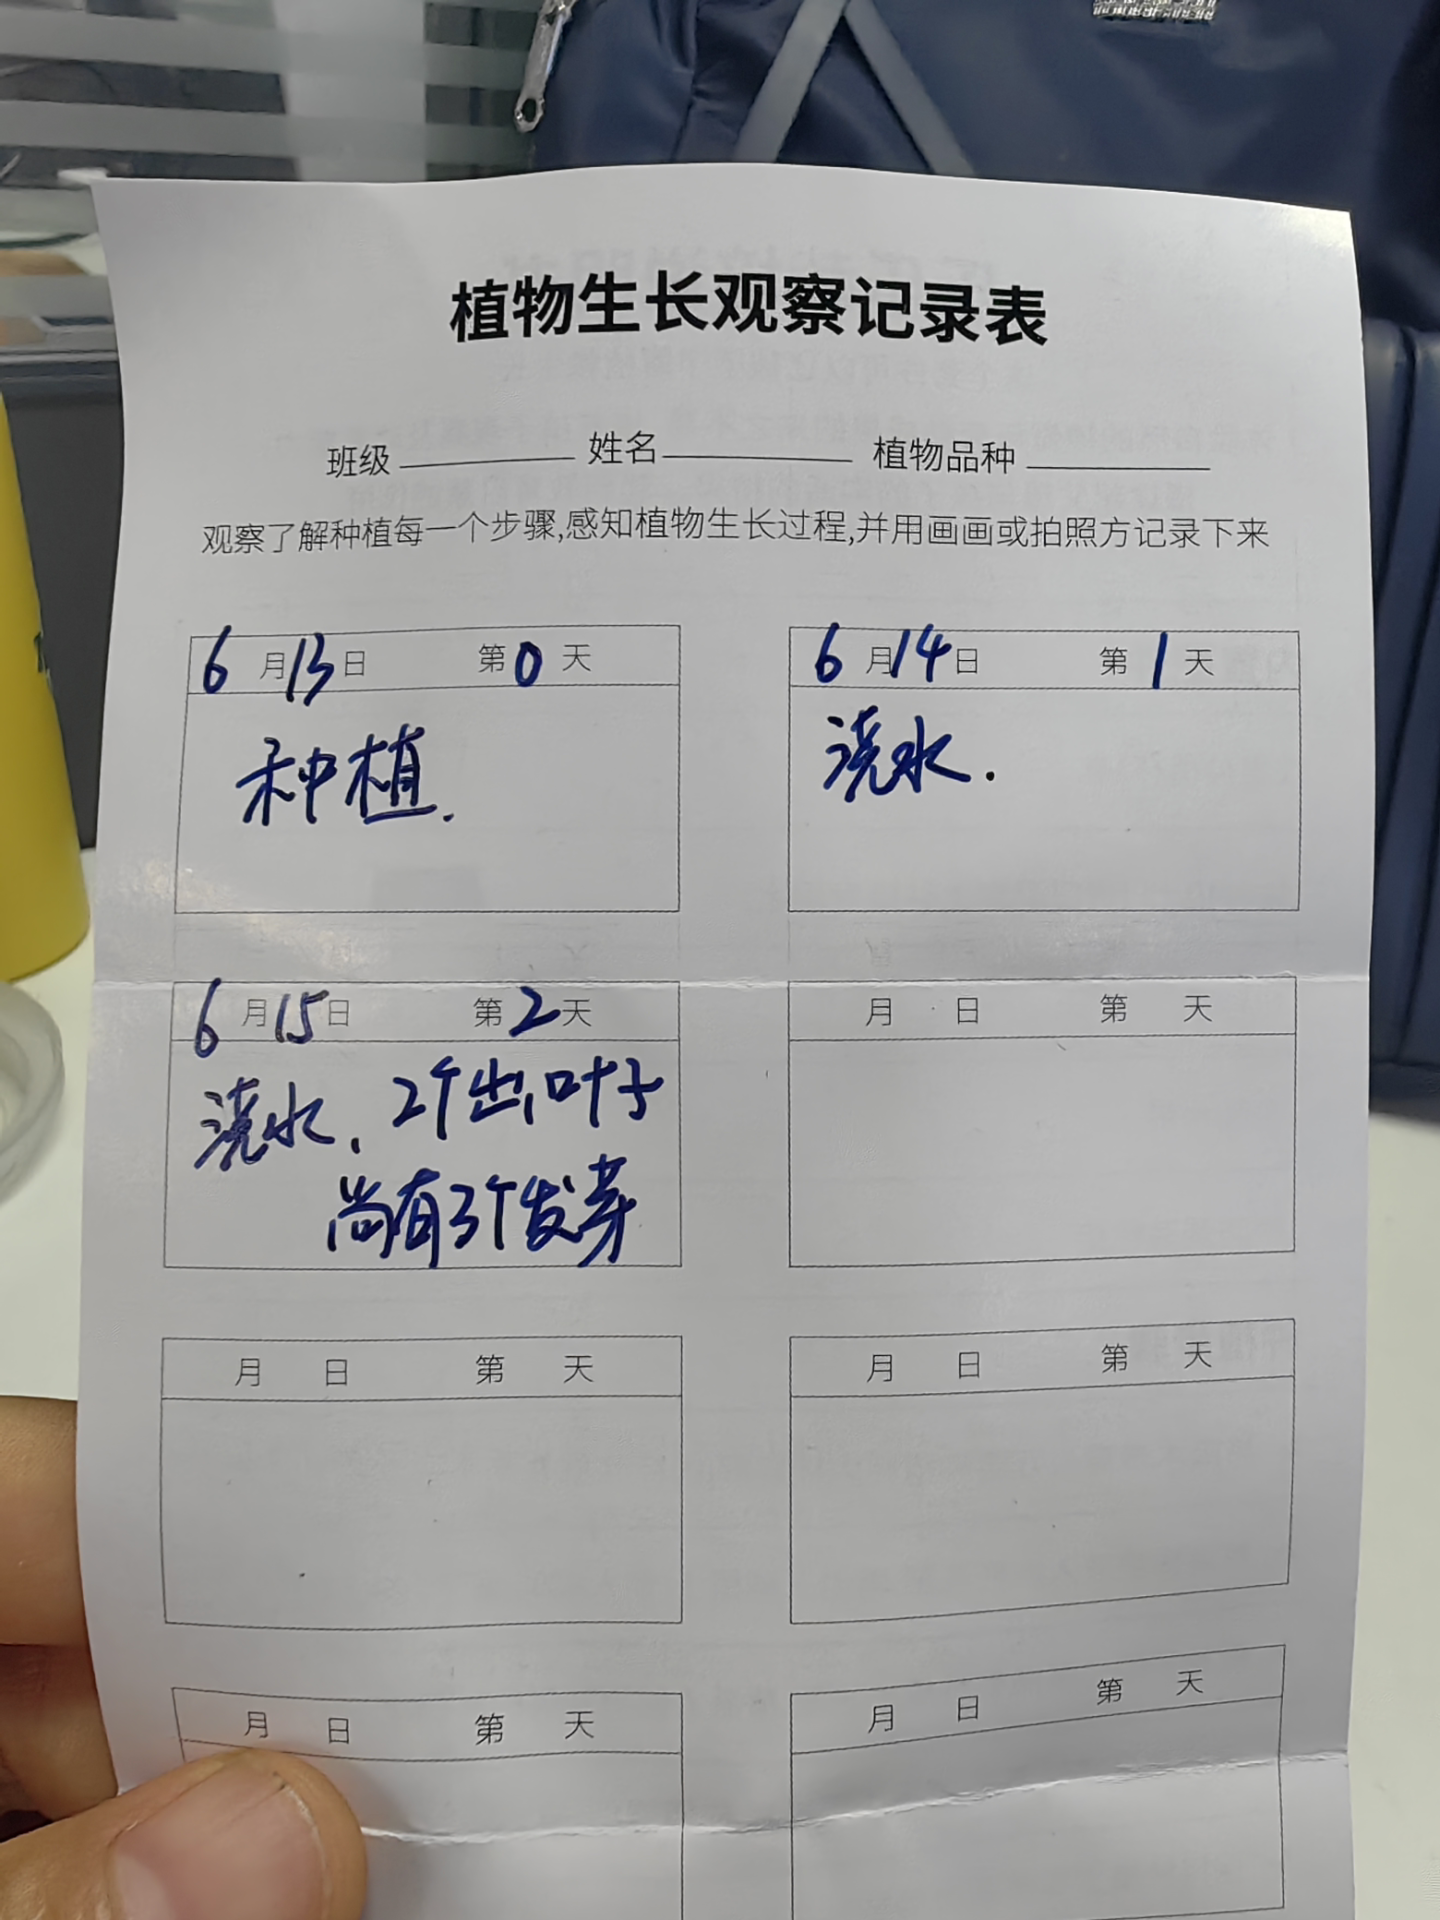 植物生长观察记录表
班级 姓名 植物品种
观察了解种植每一个步骤,感知植物生长过程,并用画画或拍照方记录下来
6月13日 第0天
种植.
6月14日 第1天
浇水.
6月15日 第2天
浇水, 2个出叶子
尚有3个发芽
月 日 第 天
月 日 第 天
月 日 第 天
月 日 第 天
月 日 第 天